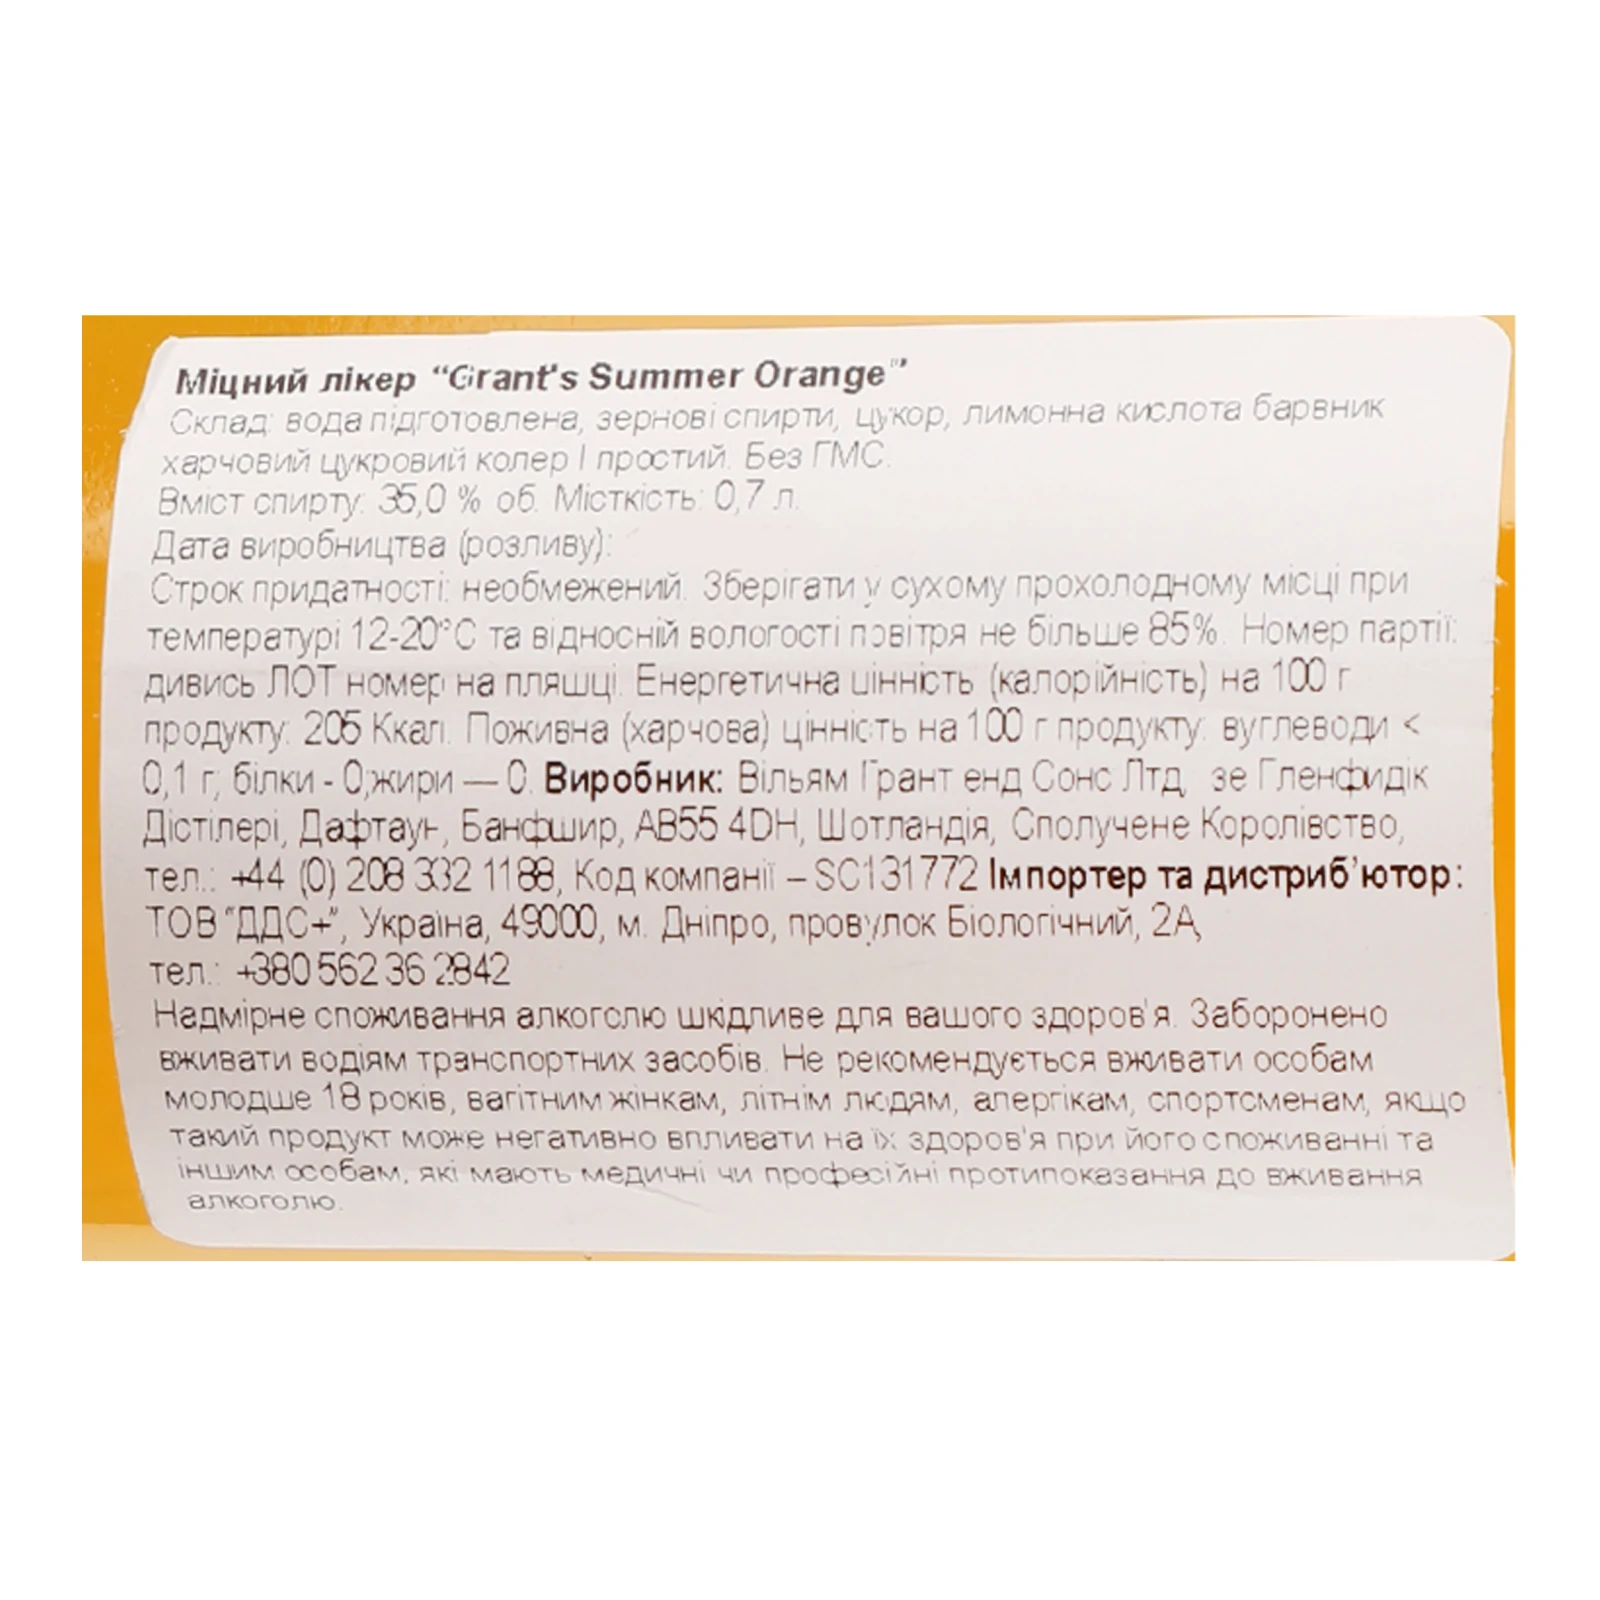 Міцний лікер “Grant's Summer Orange”
Склад: вода підготовлена, зернові спирти, цукор, лимонна кислота барвник
харчовий цукровий колер I простий. Без ГМС.
Вміст спирту: 35,0 % об. Місткість: 0,7 л.
Дата виробництва (розливу):
Строк придатності: необмежений. Зберігати у сухому прохолодному місці при
температурі 12-20°С та відносній вологості повітря не більше 85%. Номер партії:
дивись ЛОТ номер на пляшці. Енергетична цінність (калорійність) на 100 г
продукту: 205 Ккал. Поживна (харчова) цінність на 100 г продукту: вуглеводи <
0,1 г; білки - 0;жири — 0. Виробник: Вільям Грант енд Сонс Лтд, зе Гленфидік
Дістілері, Дафтаун, Банфшир, АВ55 4DH, Шотландія, Сполучене Королівство,
тел.: +44 (0) 208 332 1188, Код компанії – SC131772 Імпортер та дистриб’ютор:
ТОВ “ДДС+”, Україна, 49000, м. Дніпро, провулок Біологічний, 2А,
тел.: +380 562 36 2842
Надмірне споживання алкоголю шкідливе для вашого здоров'я. Заборонено
вживати водіям транспортних засобів. Не рекомендується вживати особам
молодше 18 років, вагітним жінкам, літнім людям, алергікам, спортсменам, якщо
такий продукт може негативно впливати на їх здоров'я при його споживанні та
іншим особам, які мають медичні чи професійні протипоказання до вживання
алкоголю.